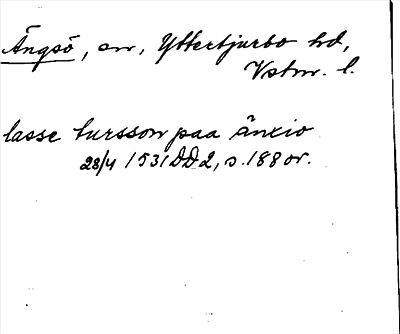 Ängsö, sn, Yttertjurbo hd,
Vstm. l.
lasse tursson paa änxio
28/4 1531 DD 2, s. 188 or.